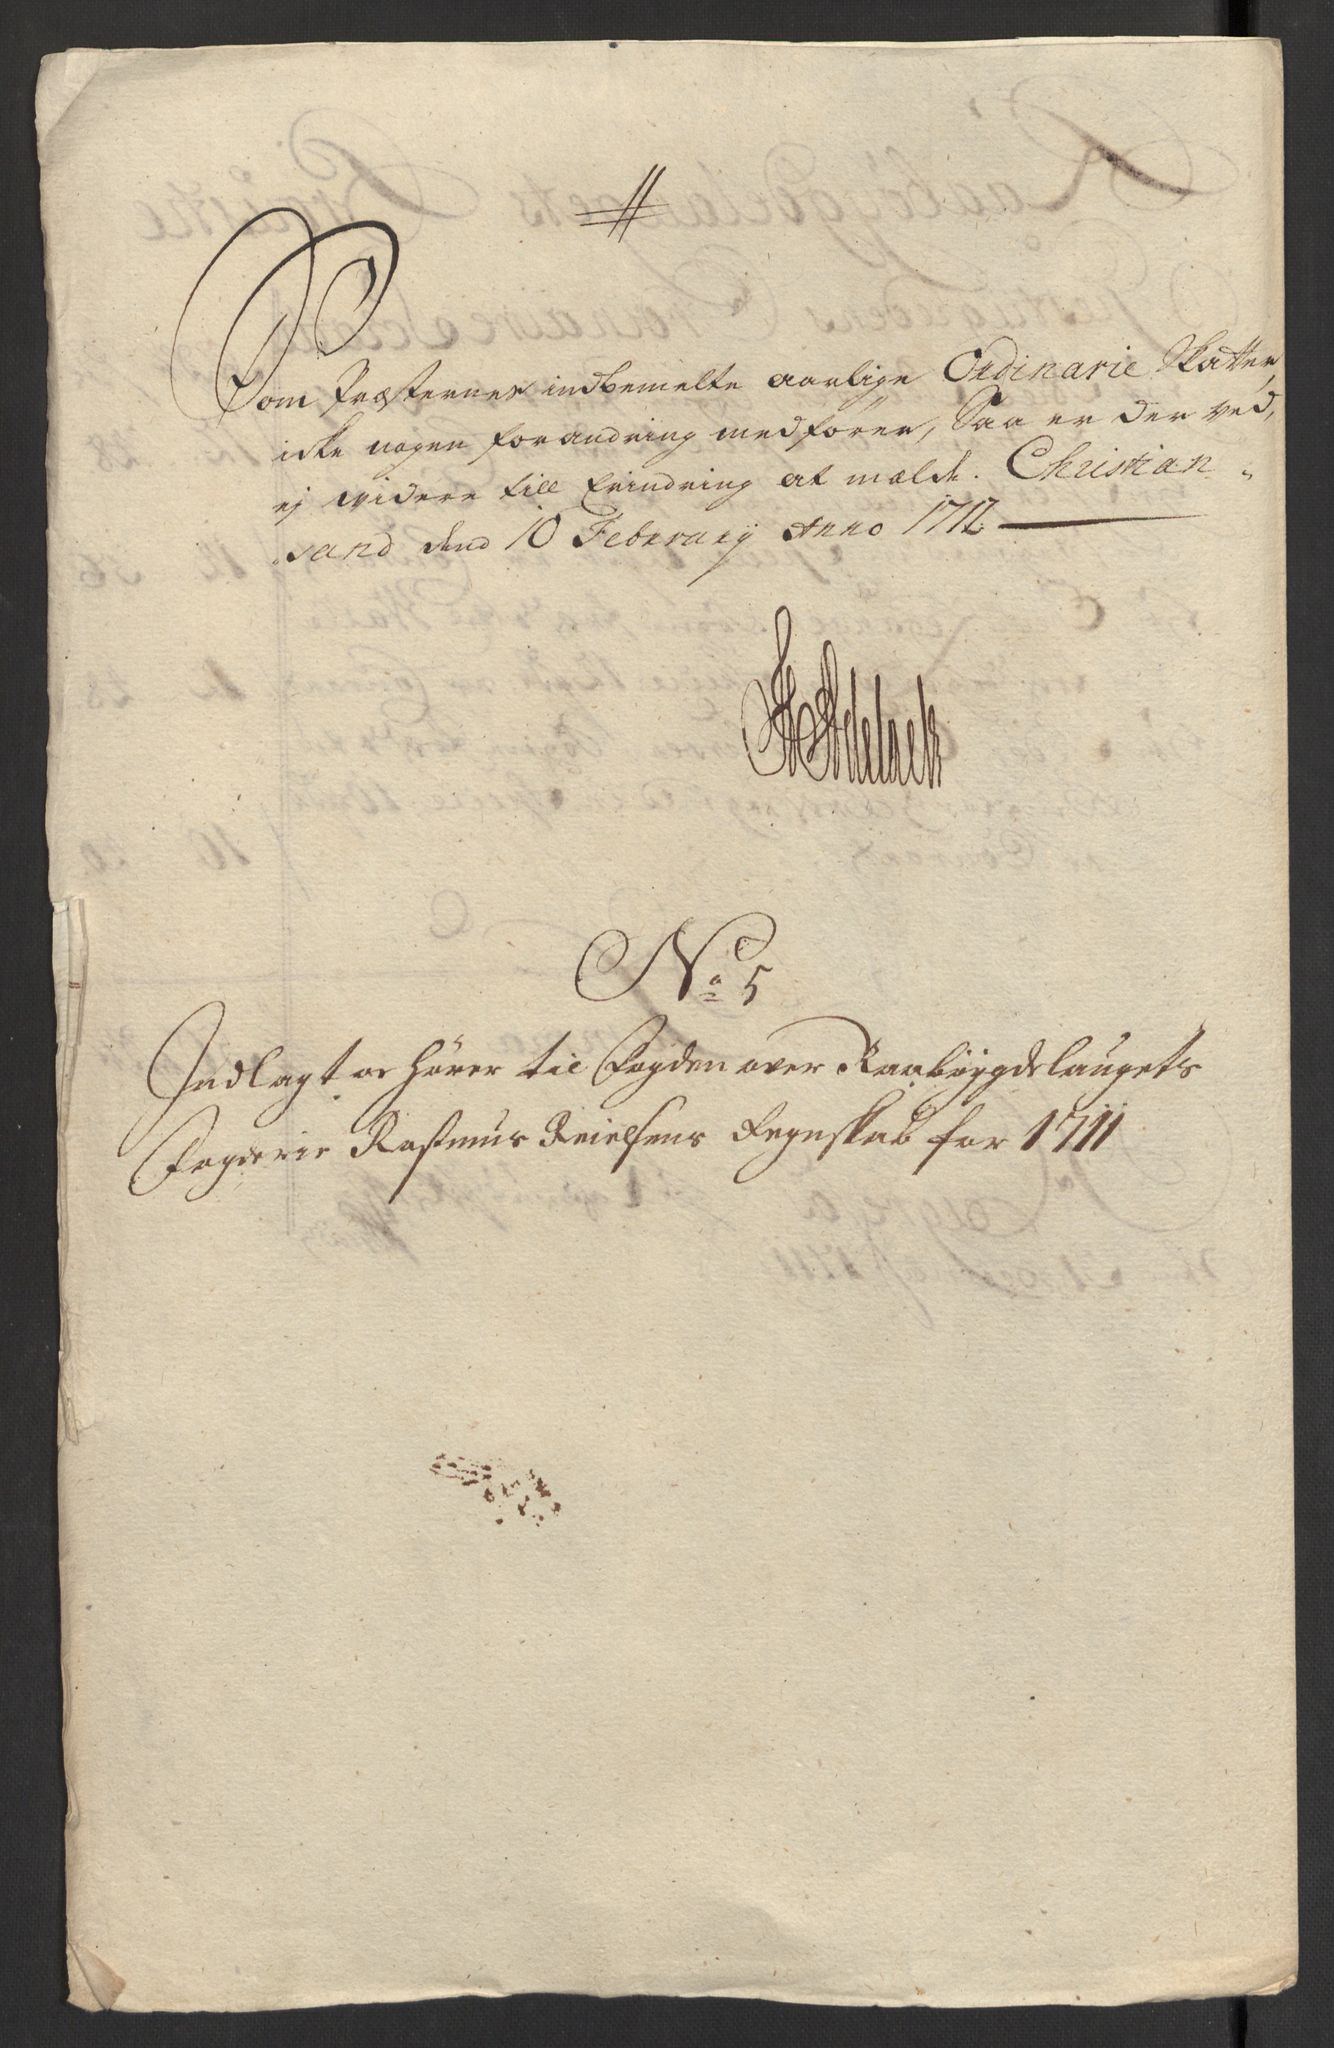 Som Præsternes indbemelte aarlige Ordinarie Skatter,
icke nogen forandring medfører, Saa er der ved,
ej videre till Erindring at mælde. Christian-
sand dend 10 February Anno 1712.
No 5
Indlagt og hører til Fogden over Raabøygdelaugets
Fogderie Rasmus Reielsens Regnskab for 1711